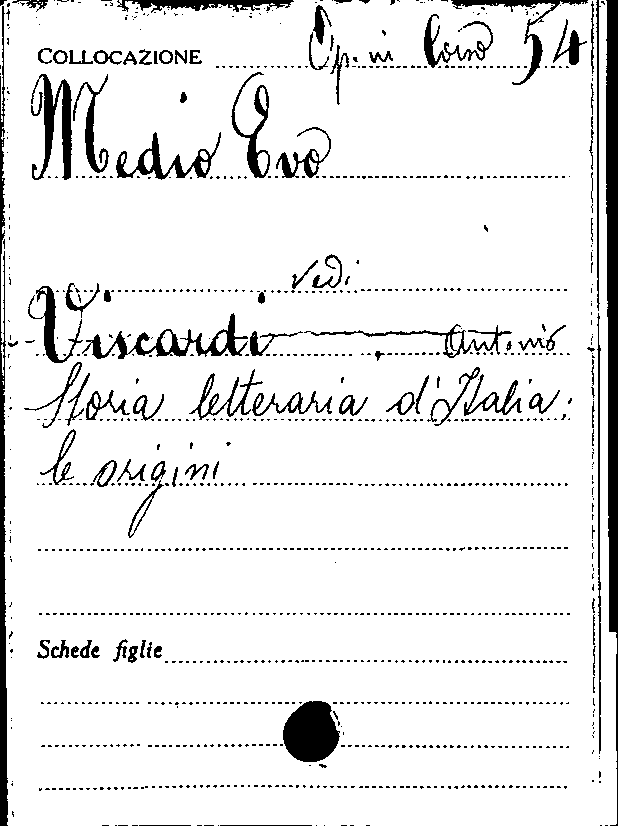 COLLOCAZIONE Op. in Corso 54
Medio Evo
vedi
Viscardi Antonio
Storia letteraria d'Italia:
le origini
Schede figlie